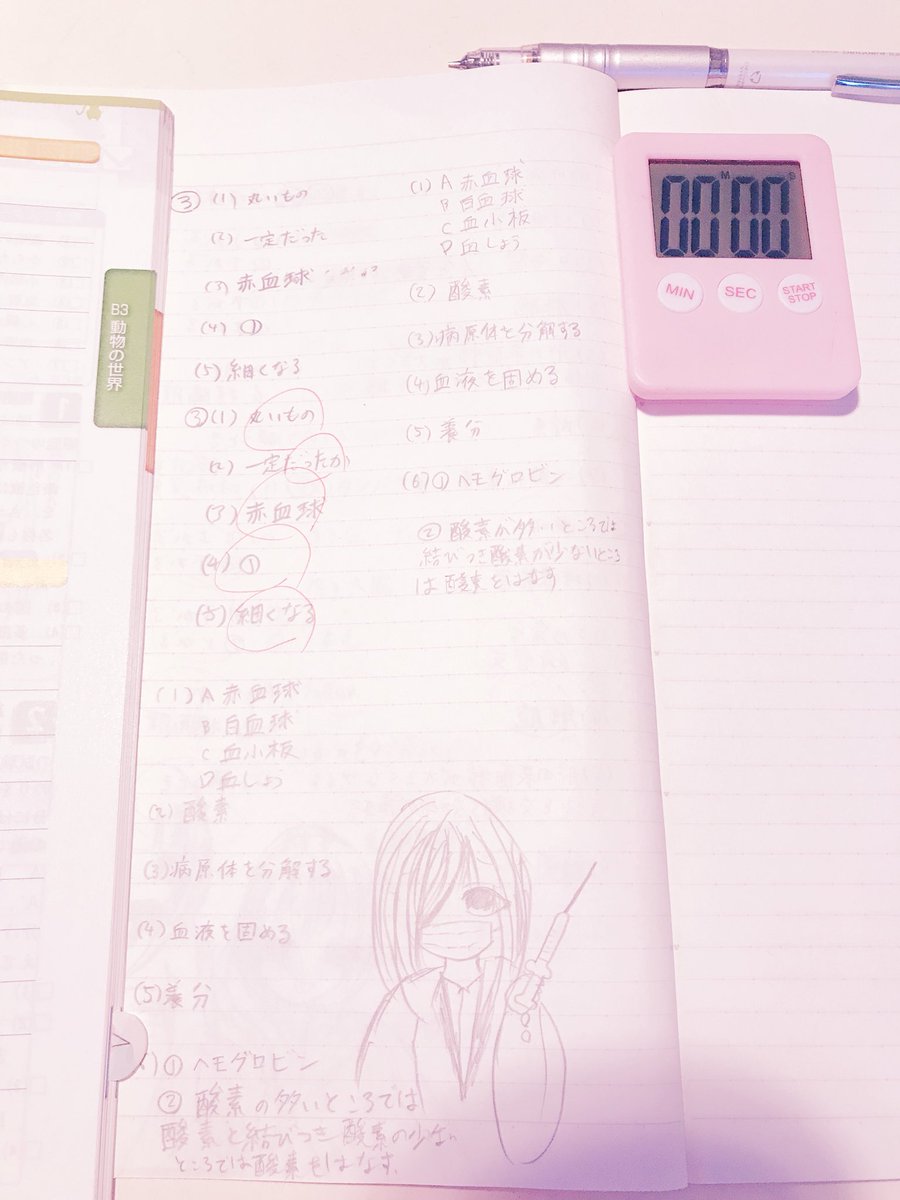 ③ (1) 丸いもの
(2) 一定だった
(3) 赤血球
(4) ①
(5) 細くなる
③ (1) 丸いもの
(2) 一定だったか
(3) 赤血球
(4) ①
(5) 細くなる
(1) A 赤血球
B 白血球
C 血小板
D 血しょう
(2) 酸素
(3) 病原体を分解する
(4) 血液を固める
(5) 養分
) ① ヘモグロビン
② 酸素の多いところでは
酸素と結びつき酸素の少ない
ところでは酸素をはなす.
(1) A 赤血球
B 白血球
C 血小板
D 血しょう
(2) 酸素
(3) 病原体を分解する
(4) 血液を固める
(5) 養分
(6) ① ヘモグロビン
② 酸素が多いところでは
結びつき酸素が少ないところ
は酸素をはなす
B3 動物の世界
M S
00 00
MIN
SEC
START
STOP